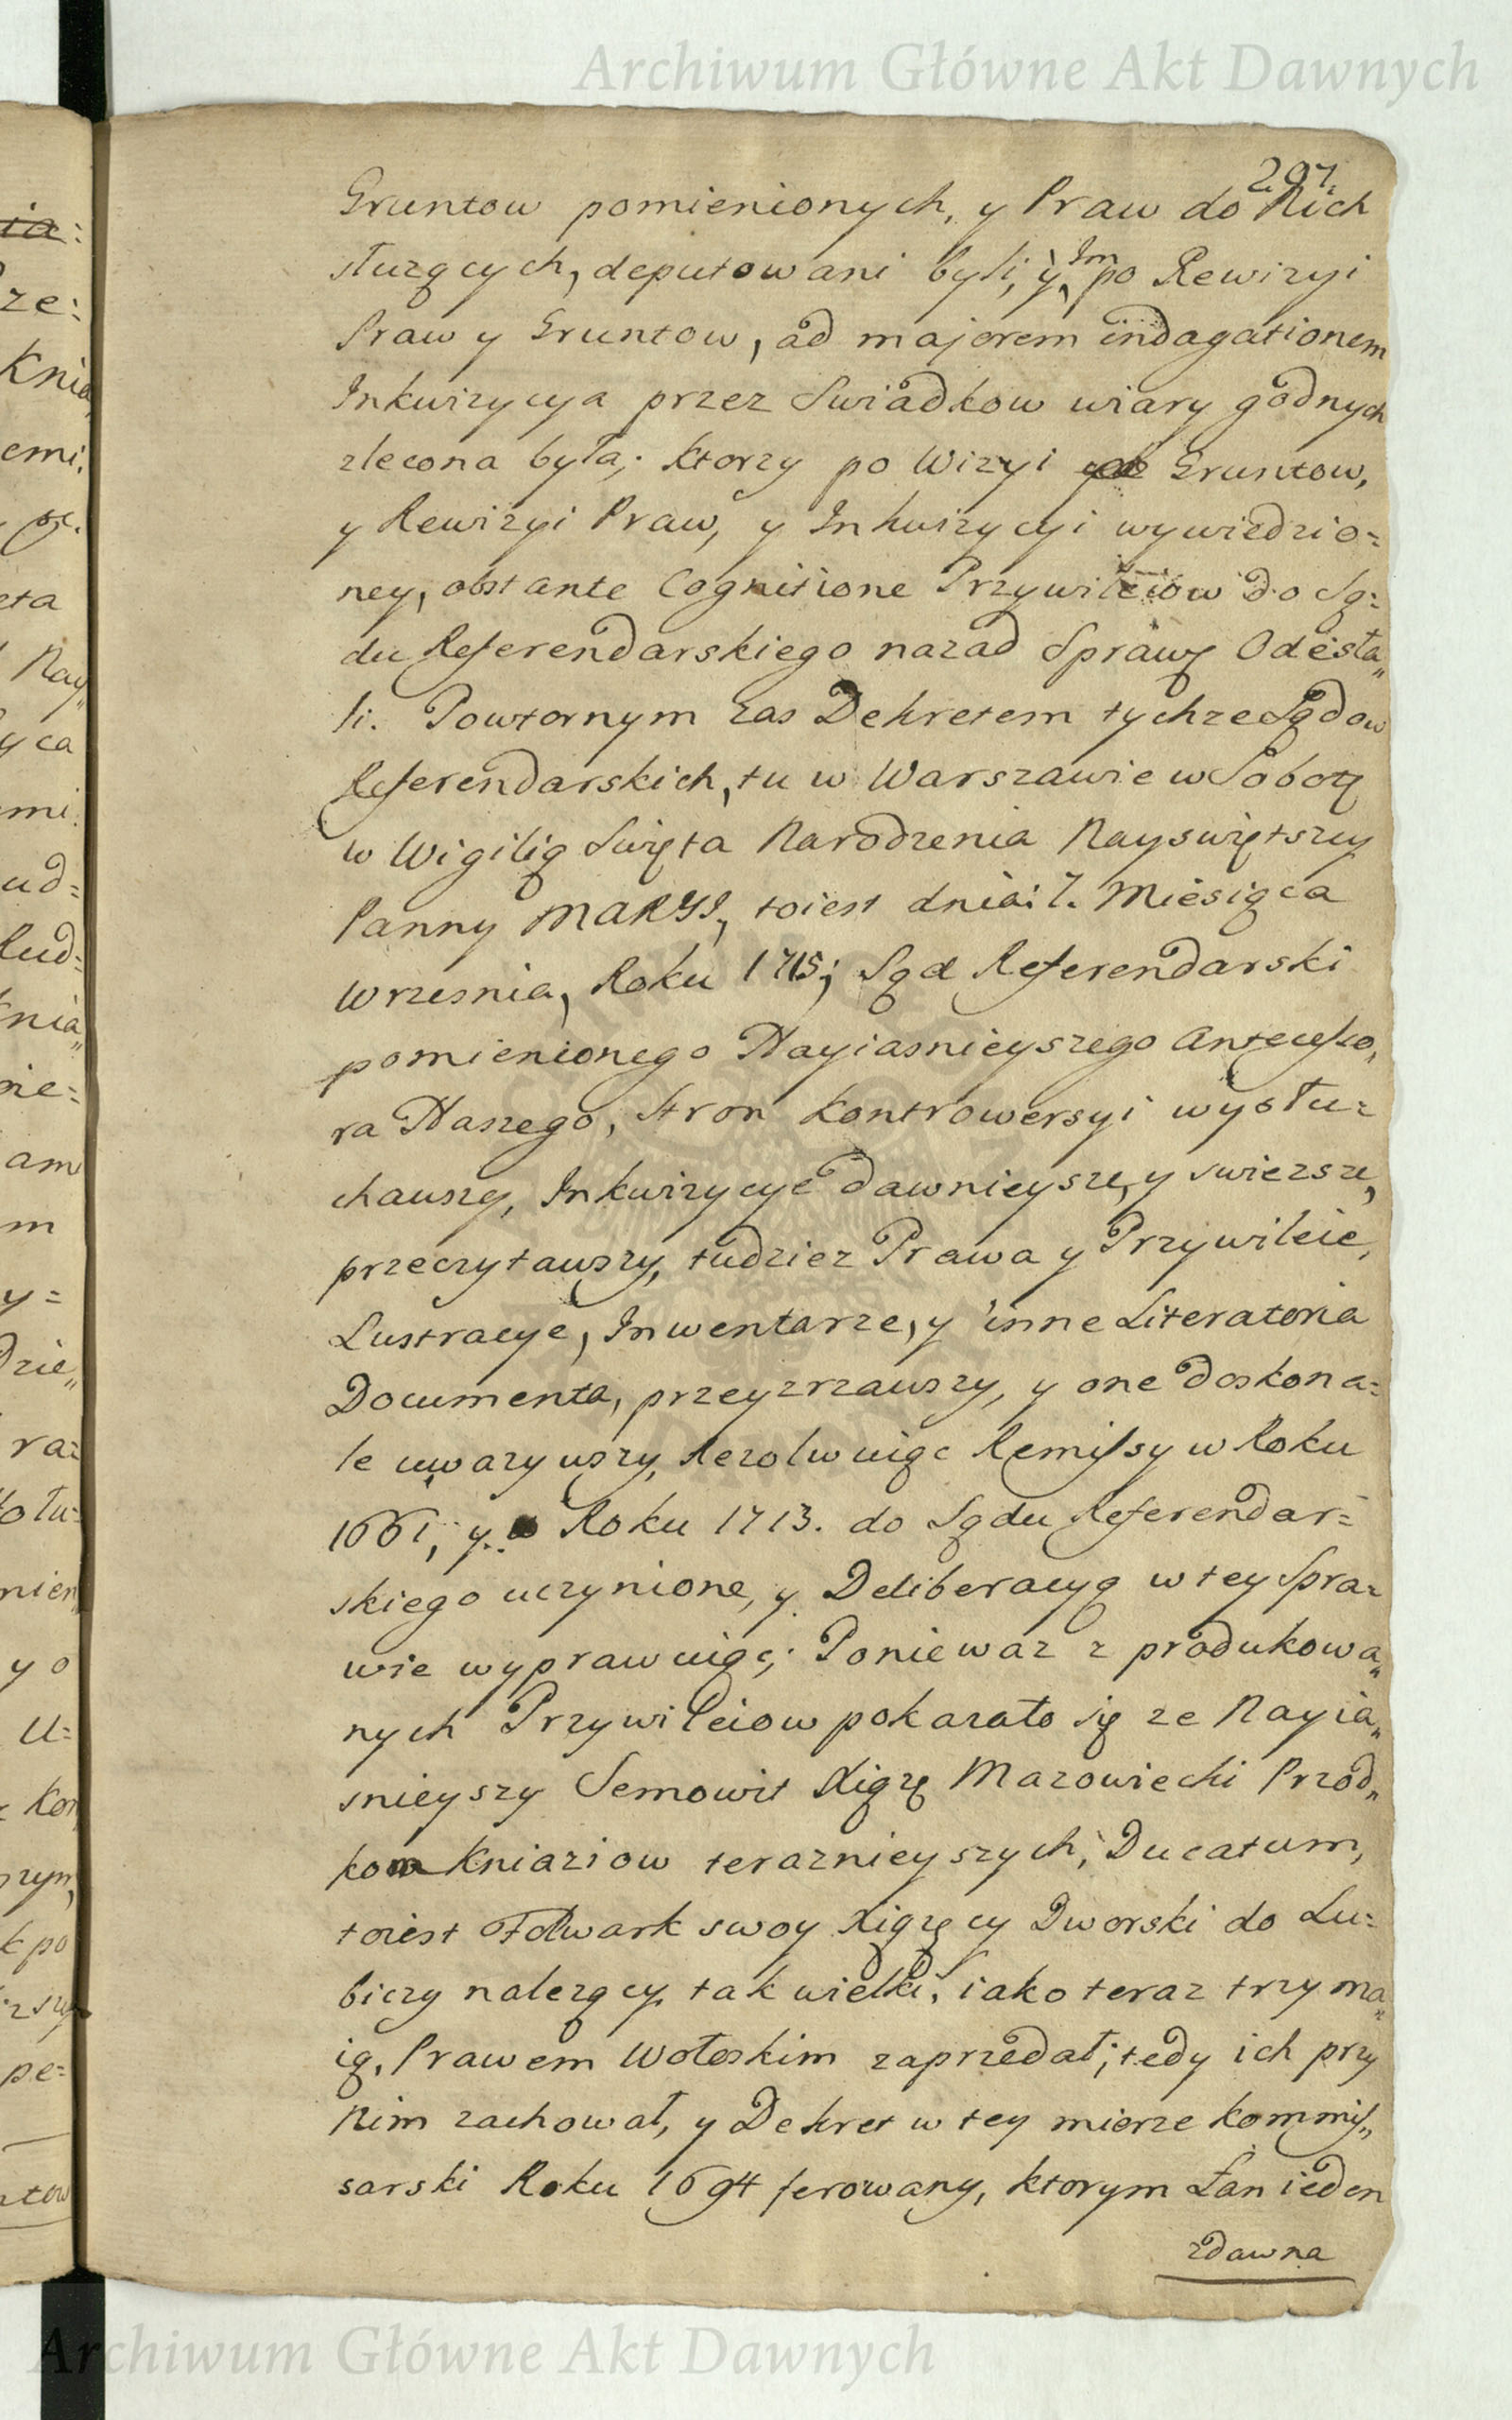 Archiwum Główne Akt Dawnych
207.
Gruntow pomienionych, y Praw do Nich
służących, deputowani byli, y Im po Rewizyi
Praw y Gruntow, ad majorem indagationem
Inkwizycya przez Swiadkow wiary godnych
zlecona była; ktorzy po Wizyi Gruntow,
y Rewizyi Praw, y Inkwizycyi wywiedzio=
ney, obstante Cognitione Przywileiow do Są=
du Referendarskiego nazad Sprawę Odesła„
li. Powtornym zas Dekretem tychze Sądow
Referendarskich, tu w Warszawie w Sobotę
w Wigilią Swięta Narodzenia Nayswiętszey
Panny MARYI, toiest dnia: 7. Miesiąca
Wrzesnia, Roku 1715; Sąd Referendarski
pomienionego Nayiasnieyszego Antecesso,
ra Naszego, Stron Kontrowersyi wysłu=
chawszy, Inkwizycye dawnieysze, y swiezsze,
przeczytawszy, tudziez Prawa y Przywileie,
Lustracye, Inwentarze, y inne Literatoria
Documenta, przeyzrzawszy, y one doskona=
le uwazywszy, Rezolwuiąc Remissy w Roku
1661, y. Roku 1713. do Sądu Referendar=
skiego uczynione, y Deliberacyą w tey Spra=
wie wyprawuiąc; Poniewaz z produkowa„
nych Przywileiow pokazało się ze Nayia„
snieyszy Semowit Xiązę Mazowiecki Przod„
kom Kniaziow teraznieyszych, Ducatum,
toiest Folwark swoy Xiązęcy Dworski do Lu=
biczy nalezący, tak wielki, iako teraz trzyma„
ią, Prawem Wołoskim zaprzedał; tedy ich przy
Nim zachował, y Dekret w tey mierze Kommis„
sarski Roku 1694 ferowany, ktorym Łan ieden
zdawna
Archiwum Główne Akt Dawnych